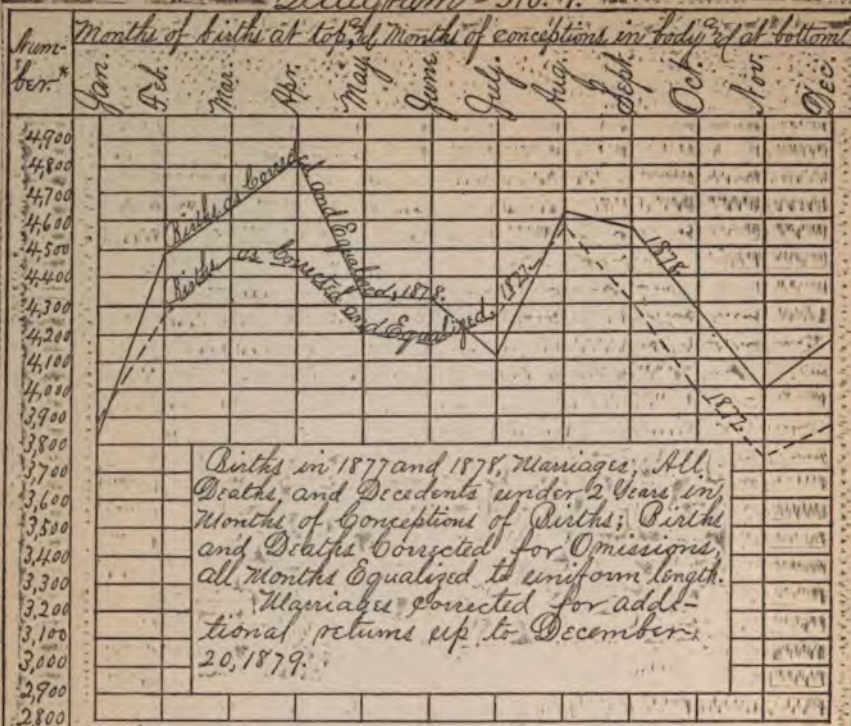 Diagram No. 1.
Num-
ber.*
Months of births at top, & of Months of conceptions in body & at bottom.
Jan. Feb. Mar. Apr. May June July. Aug. Sept. Oct. Nov. Dec.
4,900
4,800
4,700
4,600
4,500
4,400
4,300
4,200
4,100
4,000
3,900
3,800
3,700
3,600
3,500
3,400
3,300
3,200
3,100
3,000
2,900
2800
Births as Corrected and Equalized, 1878.
Births as Corrected and Equalized, 1877.
1878
1877
Births in 1877 and 1878, Marriages, All
Deaths, and Decedents under 2 Years in
Months of Conceptions of Births; Births
and Deaths Corrected for Omissions,
all Months Equalized to uniform length.
Marriages corrected for addi-
tional returns up to December
20, 1879.